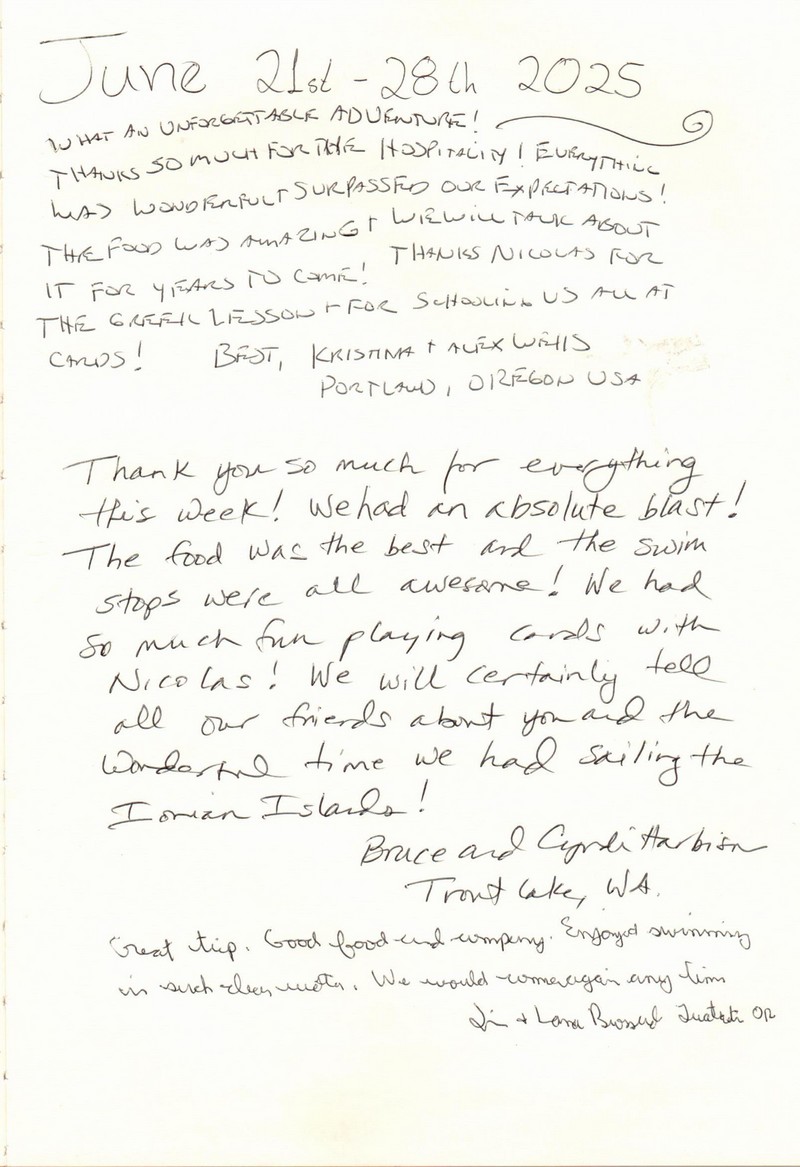 June 21st - 28th 2025
WHAT AN UNFORGETTABLE ADVENTURE!
THANKS SO MUCH FOR THE HOSPITALITY! EVERYTHING
WAS WONDERFUL + SURPASSED OUR EXPECTATIONS!
THE FOOD WAS AMAZING + WE WILL TALK ABOUT
IT FOR YEARS TO COME! THANKS NICOLAS FOR
THE GREEK LESSON + FOR SCHOOLING US ALL AT
CARDS! BEST, KRISTINA + ALEX WELLS
PORTLAND, OREGON USA
Thank you so much for everything
this week! We had an absolute blast!
The food was the best and the swim
stops were all awesome! We had
so much fun playing cards with
Nicolas! We will certainly tell
all our friends about you and the
wonderful time we had sailing the
Ionian Islands!
Bruce and Cyndi Harbison
Trout Lake, WA.
Great trip. Good food and company. Enjoyed swimming
in such clear water. We would come again any time
+ OR